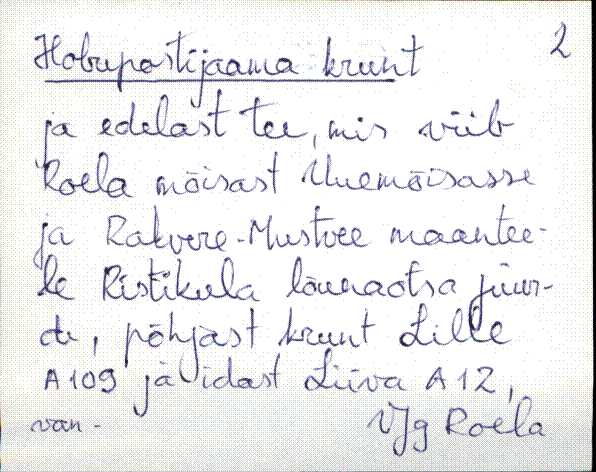 2
Hobupostijaama krunt
ja edelast tee, mis viib
Roela mõisast Uuemõisasse
ja Rakvere-Mustvee maantee-
le Ristiküla lõunaotsa juur-
de, põhjast krunt Lille
A109 ja idast Liiva A12,
van- VJg Roela